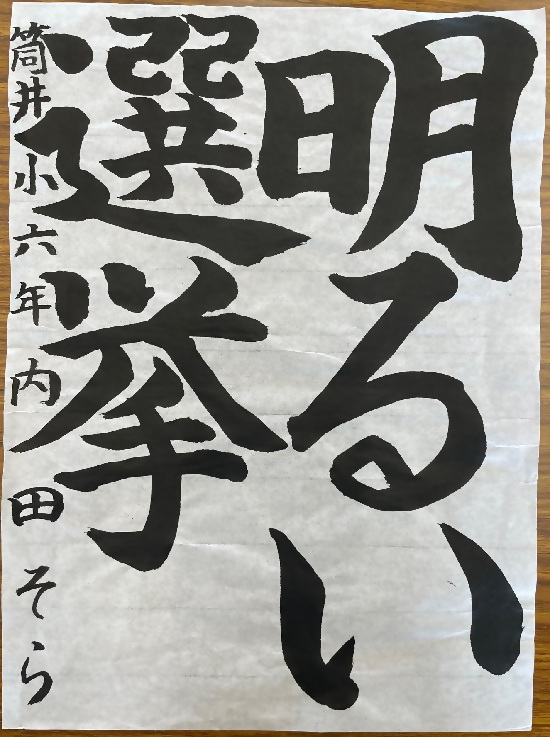 明るい
選挙
筒井小六年内田そら